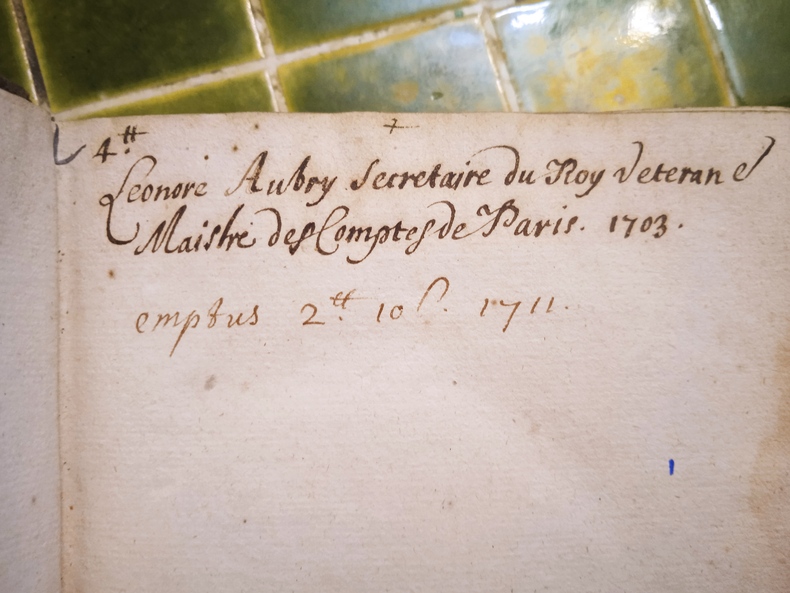 4.₶ +
Leonore Aubry Secretaire du Roy Veteran et
Maistre des Comptes de Paris. 1703.
emptus 2₶ 10 s. 1711.